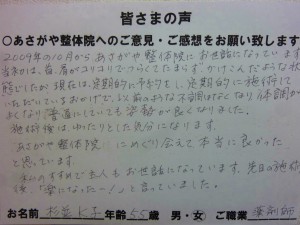 皆さまの声
○あさがや整体院へのご意見・ご感想をお願い致します
2009年の10月からあさがや整体院にお世話になっています
当初は、首、肩がコリコリでつらくてたまらず
状態でしたが、現在は定期的に予約をし、定期的に施術して
いただいているおかげで、以前のような不調はなくなり体調が
よくなり、普通にしていても姿勢が良くなりました。
施術後は、ゆったりとした気分になります。
あさがや整体院にめぐり会えて本当に良かった
と思っています
も お世話になっています。先日の施術
後、「楽になったー!」と言っていました。
お名前 K子 年齢 55歳 男・女 ご職業 薬剤師